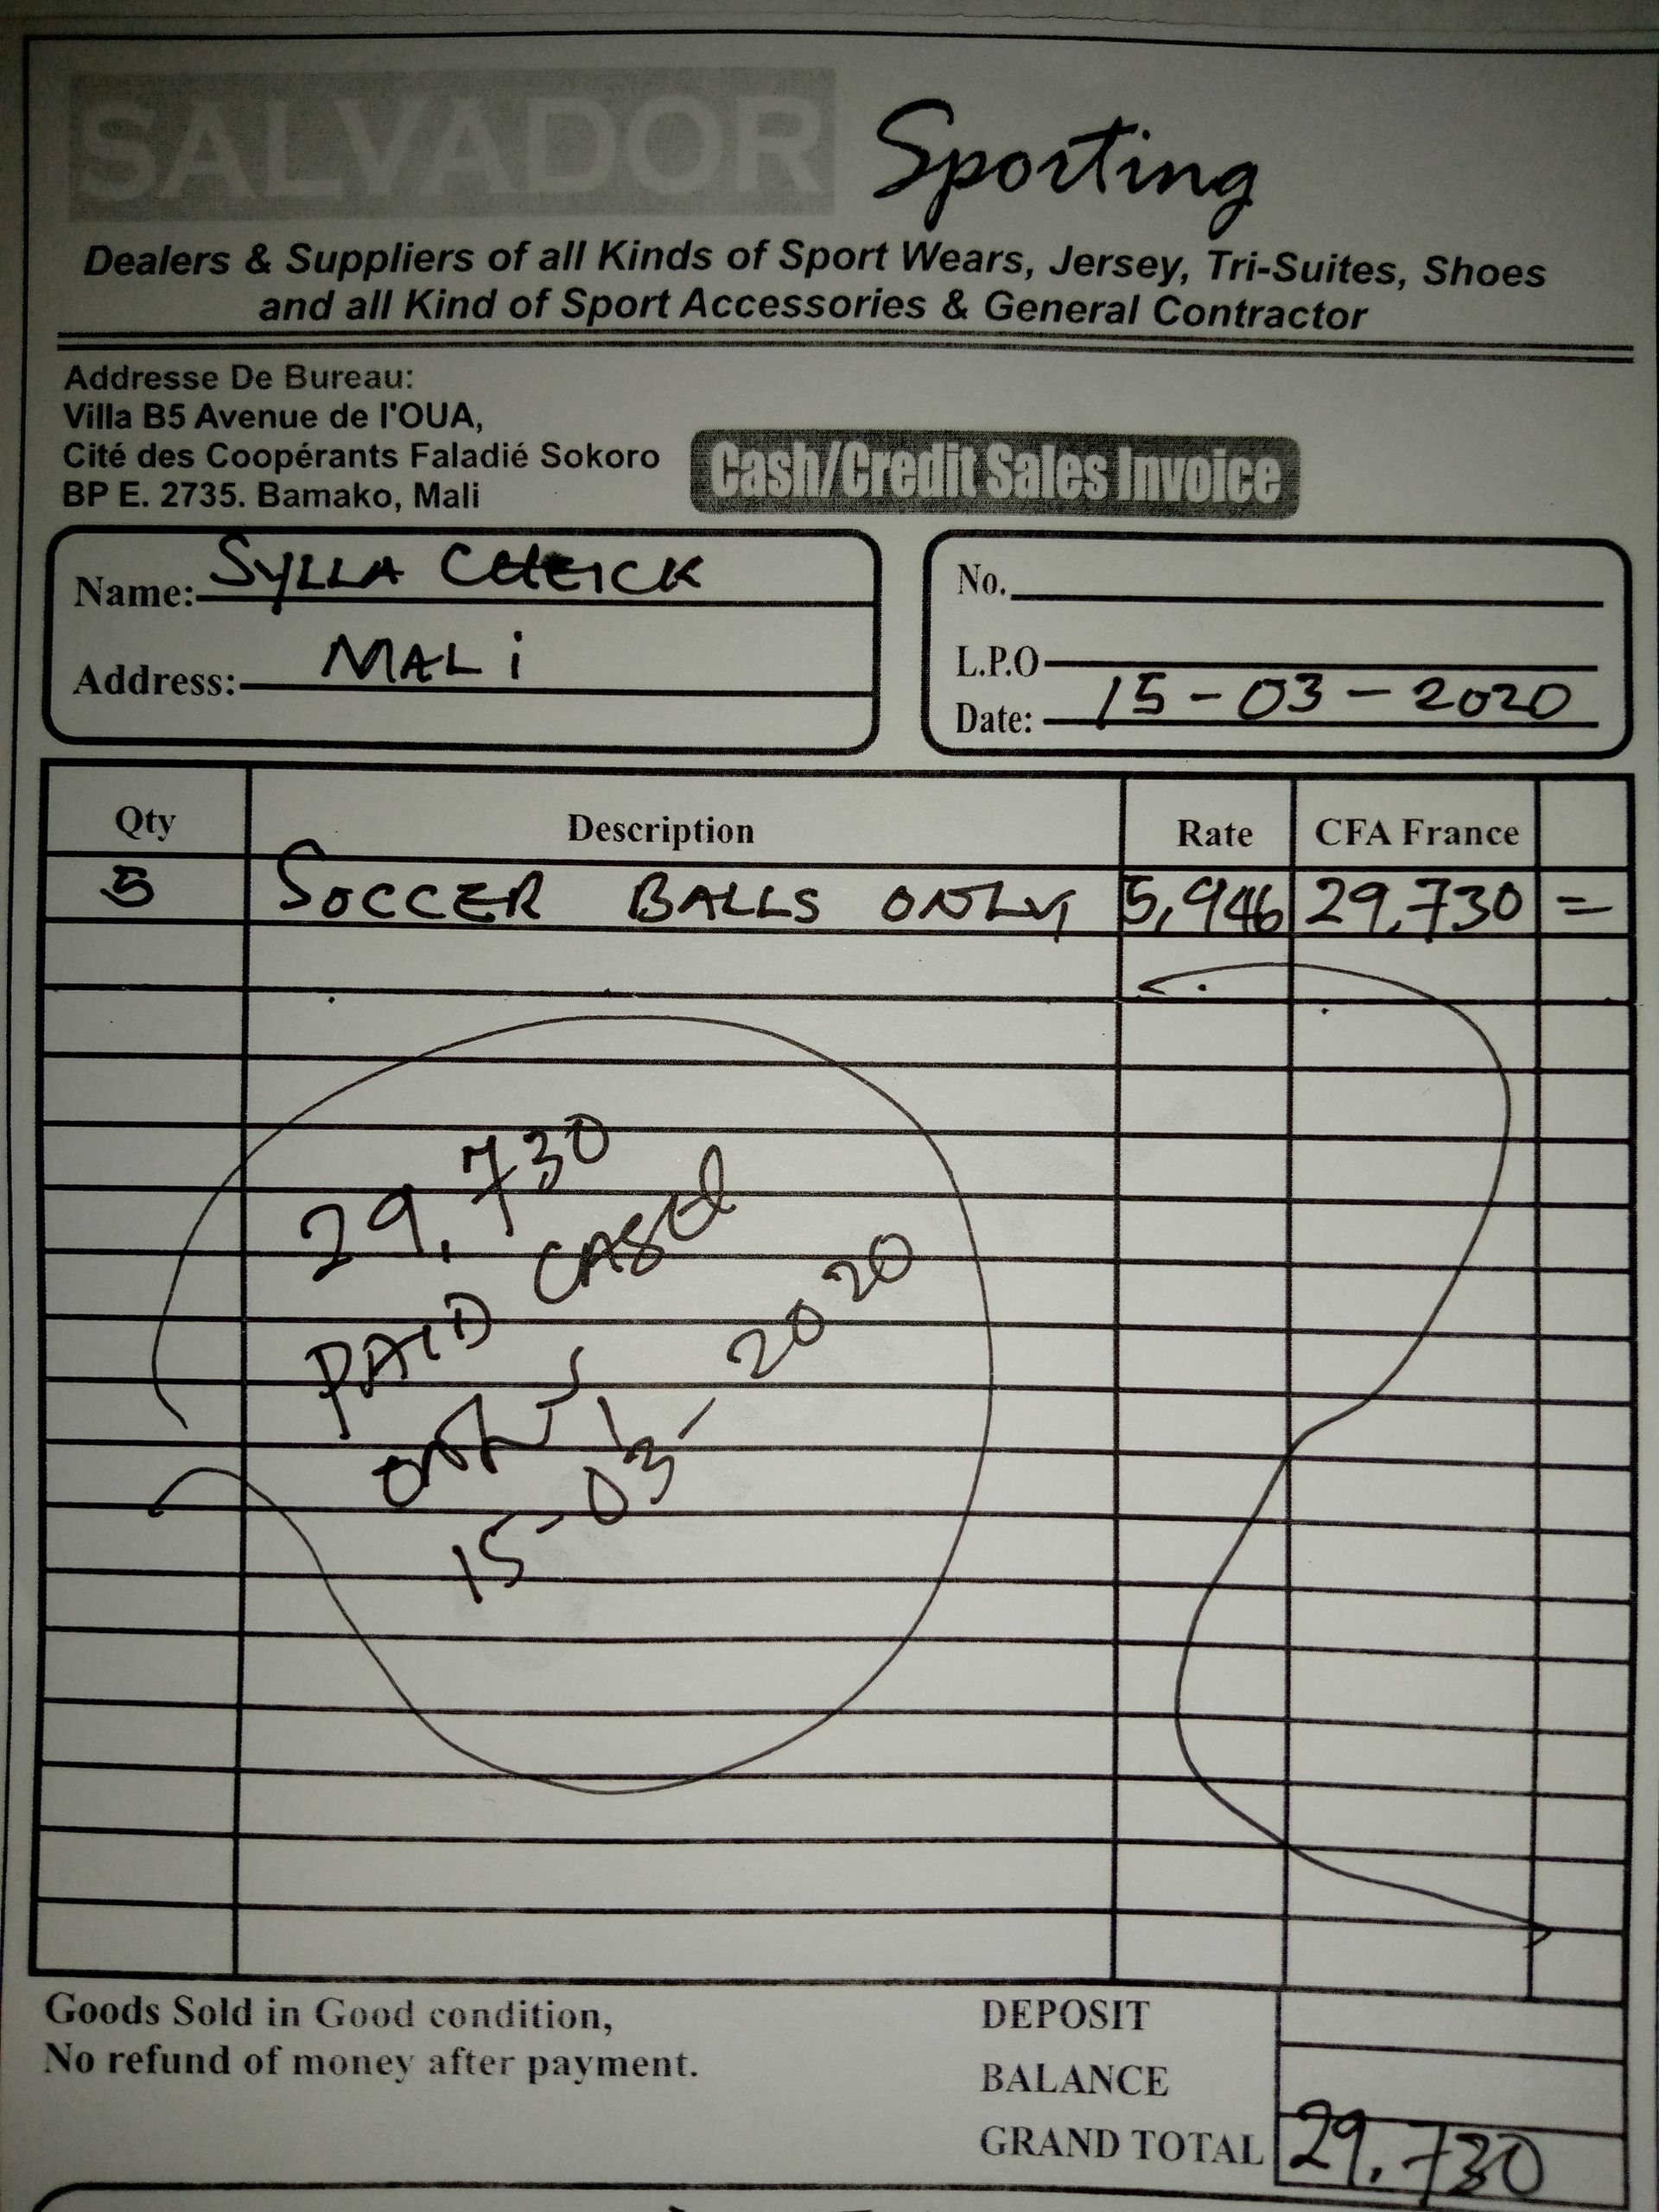 SALVADOR Sporting
Dealers & Suppliers of all Kinds of Sport Wears, Jersey, Tri-Suites, Shoes
and all Kind of Sport Accessories & General Contractor
Addresse De Bureau:
Villa B5 Avenue de l'OUA,
Cité des Coopérants Faladié Sokoro
BP E. 2735. Bamako, Mali
Cash/Credit Sales Invoice
Name: SYLLA CHEICK
Address: MALi
No.
L.P.O
Date: 15-03-2020
Qty Description Rate CFA France
5 SOCCER BALLS ONLY 5,946 29,730 =
29,730
PAID CASH
ONLY
15-03-2020
Goods Sold in Good condition,
No refund of money after payment.
DEPOSIT
BALANCE
GRAND TOTAL 29,730